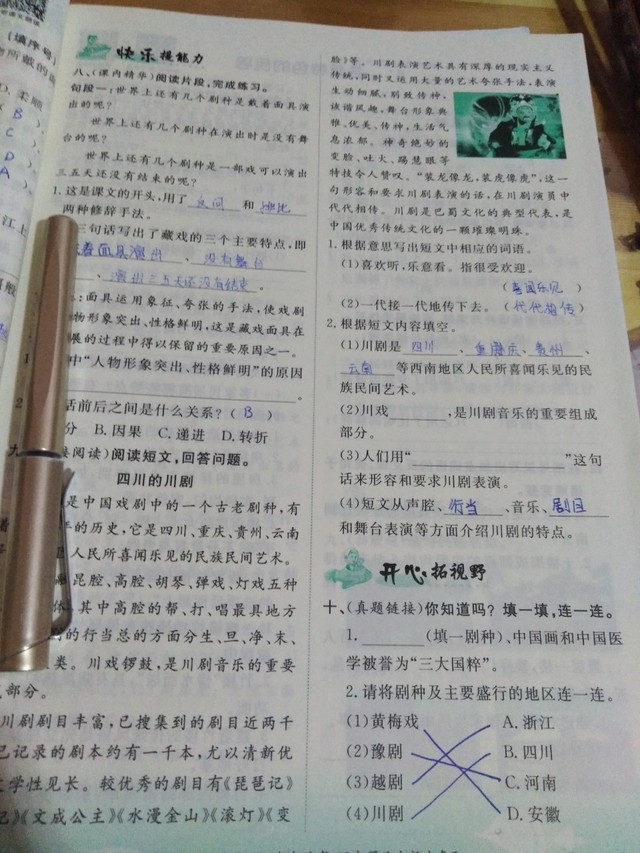 (填序号)
B
C
D
A
快乐提能力
八、(课内精华)阅读片段,完成练习。
句段一:世界上还有几个剧种是戴着面具演
出的呢?
世界上还有几个剧种在演出时是没有舞
台的呢?
世界上还有几个剧种是一部戏可以演出
三五天还没有结束的呢?
1.这是课文的开头,用了 反问 和 排比
两种修辞手法。
三句话写出了藏戏的三个主要特点,即
着面具演出、没有舞台
、演出三五天还没有结束。
:面具运用象征、夸张的手法,使戏剧
物形象突出、性格鲜明,这是藏戏面具在
展的过程中得以保留的重要原因之一。
中“人物形象突出、性格鲜明”的原因
。
话前后之间是什么关系?( B )
分 B.因果 C.递进 D.转折
阅读)阅读短文,回答问题。
四川的川剧
是中国戏剧中的一个古老剧种,有
的历史,它是四川、重庆、贵州、云南
人民所喜闻乐见的民族民间艺术。
昆腔、高腔、胡琴、弹戏、灯戏五种
体。其中高腔的帮、打、唱最具地方
的行当总的方面分生、旦、净、末、
类。川戏锣鼓,是川剧音乐的重要
部分。
川剧剧目丰富,已搜集到的剧目近两千
已记录的剧本约有一千本,尤以清新优
文学性见长。较优秀的剧目有《琵琶记》
记》《文成公主》《水漫金山》《滚灯》《变
脸》等。川剧表演艺术具有深厚的现实主义
传统,同时又运用大量的艺术夸张手法,表演
生动细腻,别致传神,
诙谐风趣,舞台形象典
雅、优美、传神,生活气
息浓郁。神奇绝妙的
变脸、吐火、踢慧眼等
特技令人赞叹。“装龙像龙,装虎像虎”,这一
句形容和要求川剧表演的话,在川剧演员中
代代相传。川剧是巴蜀文化的典型代表,是
中国优秀传统文化的一颗璀璨明珠。
1.根据意思写出短文中相应的词语。
(1)喜欢听,乐意看。指很受欢迎。
(喜闻乐见)
(2)一代接一代地传下去。(代代相传)
2.根据短文内容填空。
(1)川剧是 四川、重庆、贵州、
云南 等西南地区人民所喜闻乐见的民
族民间艺术。
(2)川戏 ,是川剧音乐的重要组成
部分。
(3)人们用“ ”这句
话来形容和要求川剧表演。
(4)短文从声腔、行当、音乐、剧目
和舞台表演等方面介绍川剧的特点。
开心拓视野
十、(真题链接)你知道吗?填一填,连一连。
1. (填一剧种)、中国画和中国医
学被誉为“三大国粹”。
2.请将剧种及主要盛行的地区连一连。
(1)黄梅戏 A.浙江
(2)豫剧 B.四川
(3)越剧 C.河南
(4)川剧 D.安徽